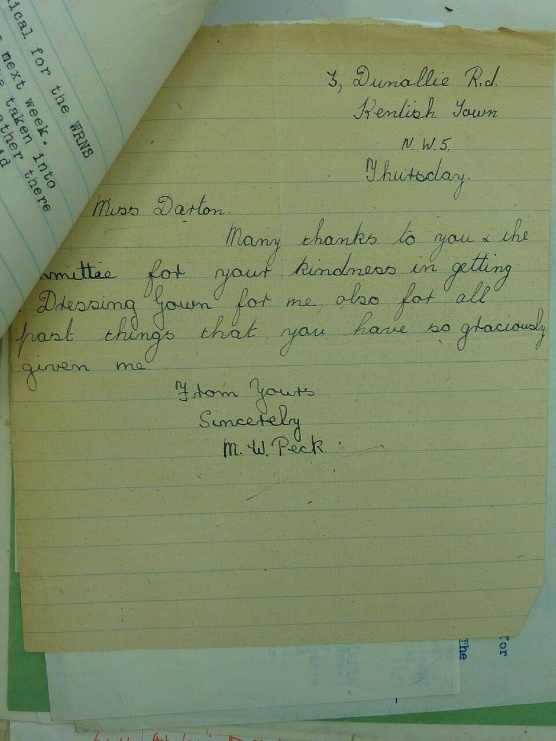 ical for the WRNS
next week.
taken into
ther there
3, Dunallie R.d.
Kentish Town
N.W.5.
Thursday.
Miss Darton.
Many thanks to you & the
mmittee for your kindness in getting
Dressing Gown for me, also for all
past things that you have so graciously
given me.
From Yours
Sincerely
M. W. Peck
for
The